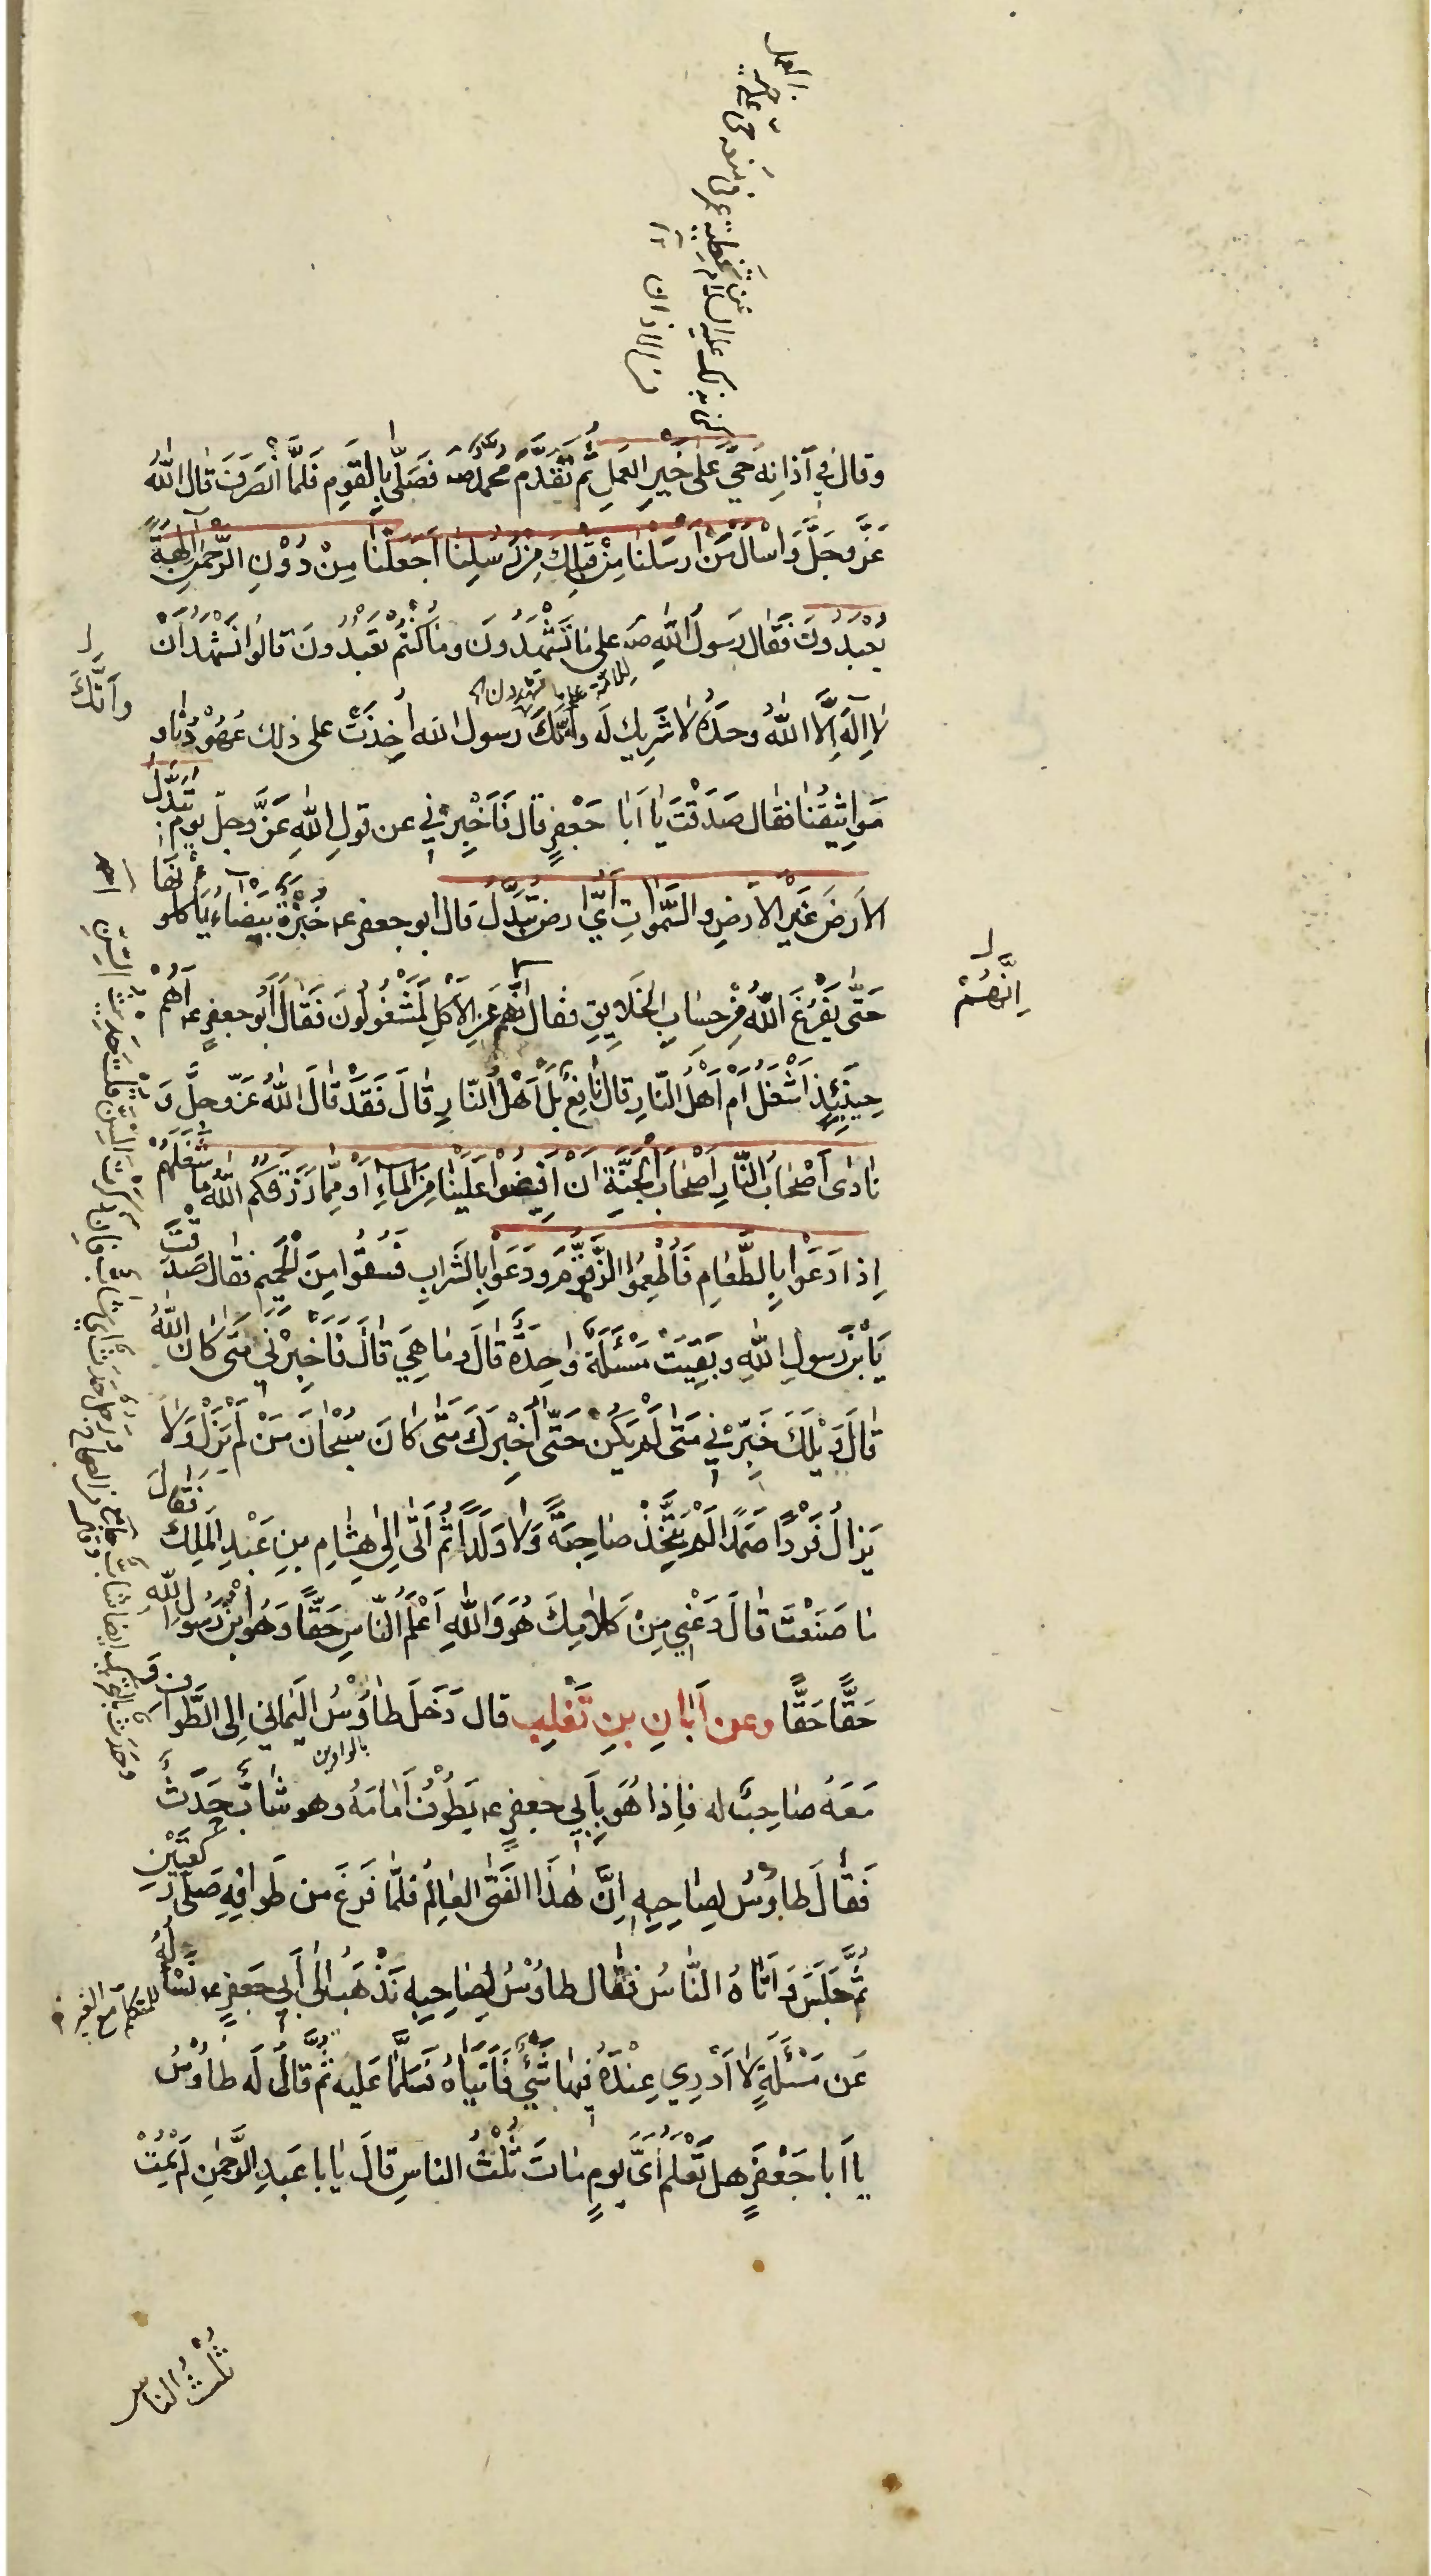 وقال في آذانِهِ حَيَّ عَلى خَيْرِ العَمَلِ ثُمَّ تَقَدَّمَ محمد صَ فَصَلّى بِالْقَوِم فَلَمَّا انْصَرَفَ قال اللهُ
عَزَّ وجَلَّ وَاسْأَلْ مَنْ أَرْسَلْنا مِنْ قَبْلِكَ مِنْ رُسُلِنا أَجَعَلْنا مِنْ دُوْنِ الرَّحْمٰنِ آلِهَةً
يُعْبَدُونَ فَقال رَسُولُ اللهِ صَ على ما تَشْهَدُونَ وما كُنْتُمْ تَعْبُدُونَ قالُوا نَشْهَدُ اَنْ
لا اِلٰهَ اِلَّا اللهُ وحدَهُ لا شَرِيكَ لَه واَنَّكَ رسول الله اُخِذَتْ على ذلك عُهُوْدُنا و
وَاَنَّكَ
مَواثِيقُنا فقال صَدَقْتَ يا اَبا جَعْفَرٍ قال فَاَخْبِرْني عن قولِ اللهِ عَزَّ وجلّ يوم تُبَدَّلُ
الارَضُ غَيْرَ الاَرْضِ والسَّمٰواتُ أَيُّ ارض تُبَدَّلُ قال ابو جعفر ع خُبْزَةٌ بَيْضاءُ يَأكلونَها
حَتّى يَفْرُغَ اللهُ مِنْ حِسابِ الخَلايِقِ فقال اِنَّهُم عَنِ الاَكْلِ لَمَشْغُولُونَ فَقال أَبُو جعفرٍ ع أَهُمْ
اِنَّهُمْ
حِينَئِذٍ اَشْغَلُ اَمْ اَهْلُ النّارِ قال نافِعٌ بَلْ اَهْلُ النّارِ قالَ فَقَدْ قالَ اللهُ عَزّ وجلَّ وَ
نادى أَصْحابُ النّارِ اَصْحابَ الجَنَّةِ اَنْ اَفِيضُوا عَلَيْنا مِنَ الماءِ اَوْ مِمّا رَزَقَكُمُ اللهُ ما شَغَلَهُمْ
اِذا دَعَوْا بِالطَّعامِ فَاُطْعِمُوا الزَّقُّومَ ودَعَوْا بِالشَّرابِ فَسُقُوا مِنَ الْحَمِيم فقال صَدَقْتَ
يَا بْنَ رَسولِ اللهِ وبَقِيَتْ مَسْئَلَةٌ واحِدَةٌ قالَ وما هِيَ قالَ فَاَخْبِرْني مَتى كانَ اللهُ
قالَ وَيْلَكَ خَبِّرْني مَتى لَمْ يَكُنْ حَتّى اُخْبِرَكَ مَتى كانَ سُبْحانَ مَنْ لَمْ يَزَلْ وَلا
يَزالُ فَرْدًا صَمَدًا لَمْ يَتَّخِذْ صاحِبَةً وَلا وَلَدًا ثُمَّ اَتى اِلى هِشامِ بنِ عَبْدِ المَلِكِ فَقالَ
ما صَنَعْتَ قالَ دَعْني مِنْ كَلامِكَ هُوَ وَاللهِ اَعْلَمُ النّاسِ حَقًّا وَهُوَ ابْنُ رَسُولِ اللهِ
حَقًّا حَقًّا وعن اَبانِ بنِ تَغْلِب قال دَخَلَ طاوُسُ اليَماني اِلى الطَّوافِ وَ
بالواوين
مَعَهُ صاحِبٌ له فاِذا هُوَ بِاَبي جعفرٍ ع يَطُوْفُ اَمامَهُ وهو شابٌّ حَدَثٌ
فَقالَ طاوُسُ لِصاحِبِه اِنَّ هٰذا الفَتى العالِمُ فلمّا فَرَغَ من طَوافِهِ صَلّى رَكعَتَيْنِ
ثُمَّ جَلَسَ وَ اَتاهُ النّاسُ فقال طاوُسُ لِصاحِبِهِ نَذْهَبُ اِلى اَبي جعفرٍ ع نَسْأَلُهُ
للمتكلم مع الغير
عَن مَسْئَلَةٍ لا اَدْرِي عِنْدَهُ فيها شَيْءٌ فَاَتَياهُ فَسَلَّما عَليهِ ثُمَّ قالَ لَه طاوُسُ
يا اَبا جَعْفَرٍ هل تَعْلَمُ اَيَّ يومٍ ماتَ ثُلْثُ الناسِ قالَ يابا عَبدِ الرَّحمٰنِ لَمْ يَمُتْ
ثُلْثُ الناس